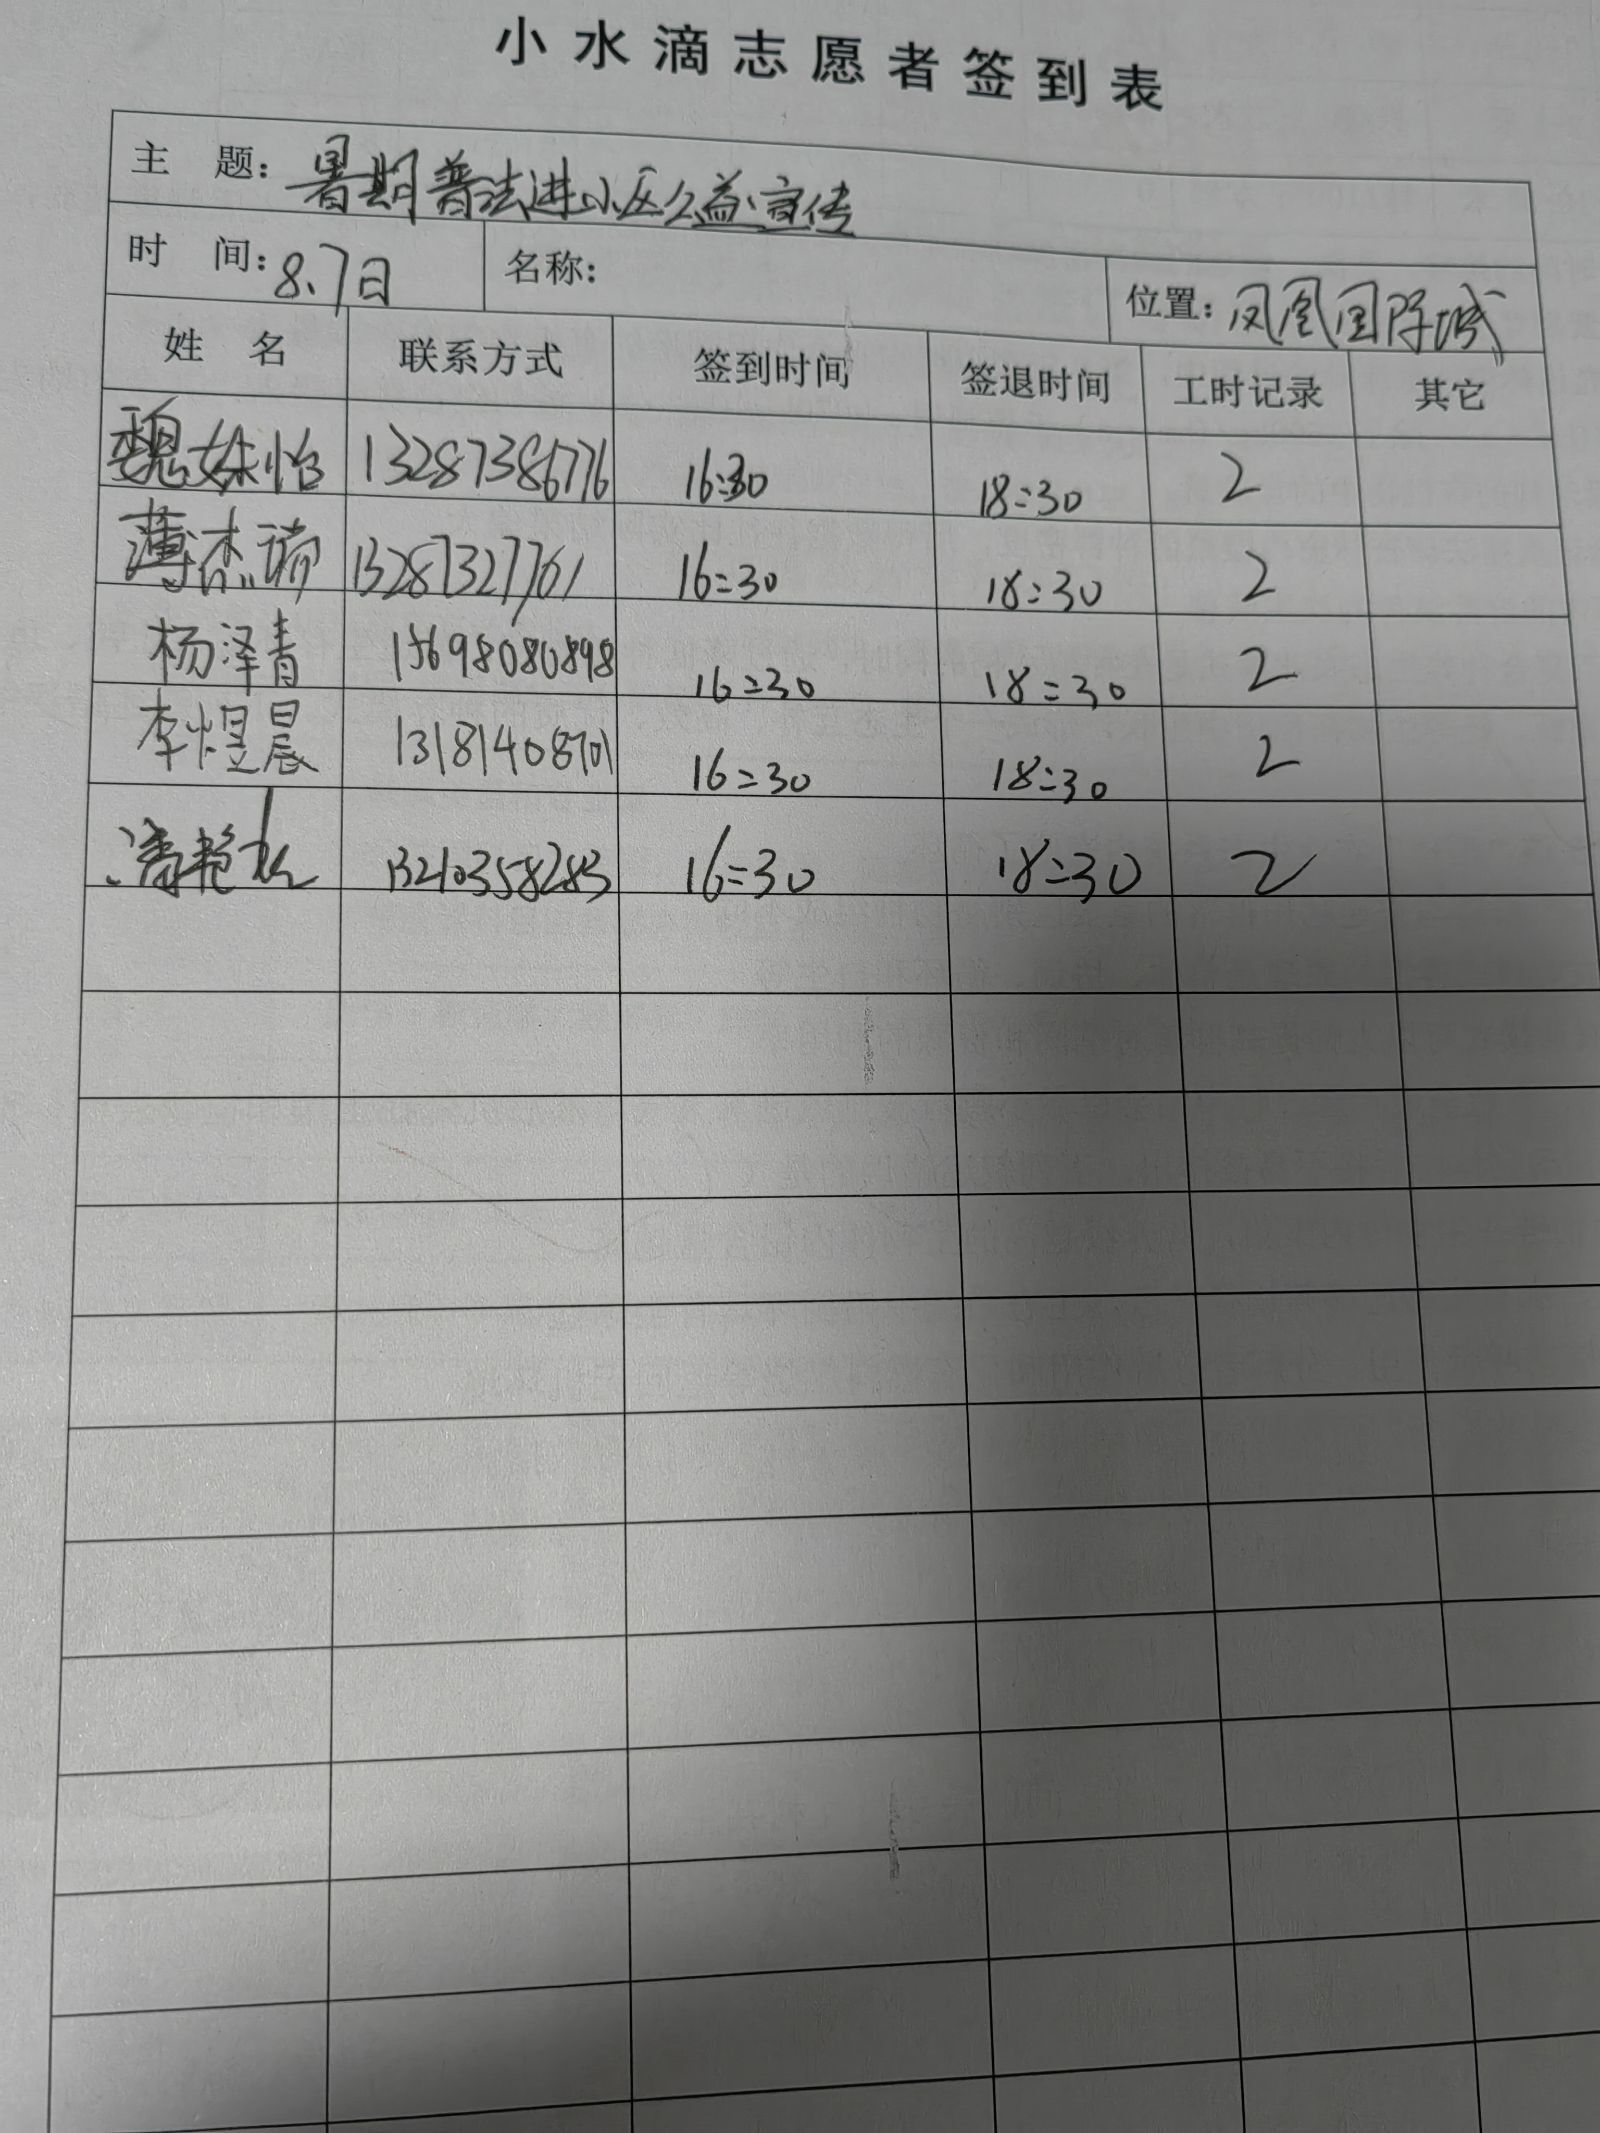 小水滴志愿者签到表
主 题：暑期普法进小区公益宣传
时 间：8.7日 名称： 位置：凤凰国际城
姓 名 联系方式 签到时间 签退时间 工时记录 其它
魏姝怡 13287386776 16:30 18:30 2
薄杰瑞 13287327761 16:30 18:30 2
杨泽青 15698080898 16:30 18:30 2
李煜晨 13181408701 16:30 18:30 2
13210358283 16:30 18:30 2